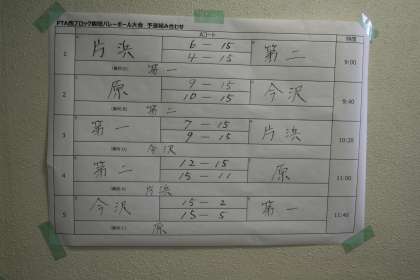 PTA西ブロック親睦バレーボール大会 予選組み合わせ
Aコート 時間
1 片浜 6 — 15 第二 9:00
4 — 15
第一
2 原 9 — 15 今沢 9:40
10 — 15
第二
3 第一 7 — 15 片浜 10:20
9 — 15
今沢
4 第二 12 — 15 原 11:00
15 — 11
片浜
5 今沢 15 — 2 第一 11:40
15 — 5
原